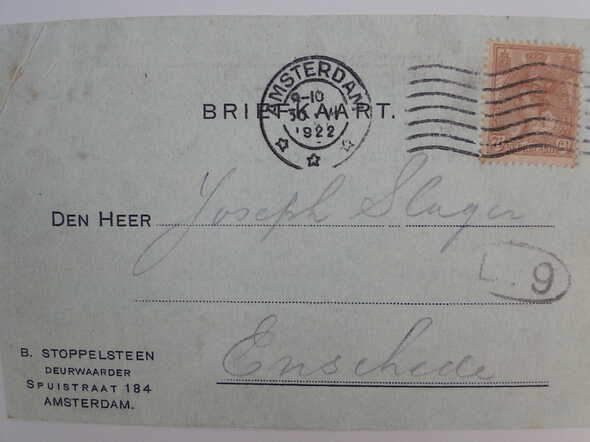 AMSTERDAM
9-10
1922
BRIEFKAART.
DEN HEER Joseph Slager
L. 9
Enschede
B. STOPPELSTEEN
DEURWAARDER
SPUISTRAAT 184
AMSTERDAM.